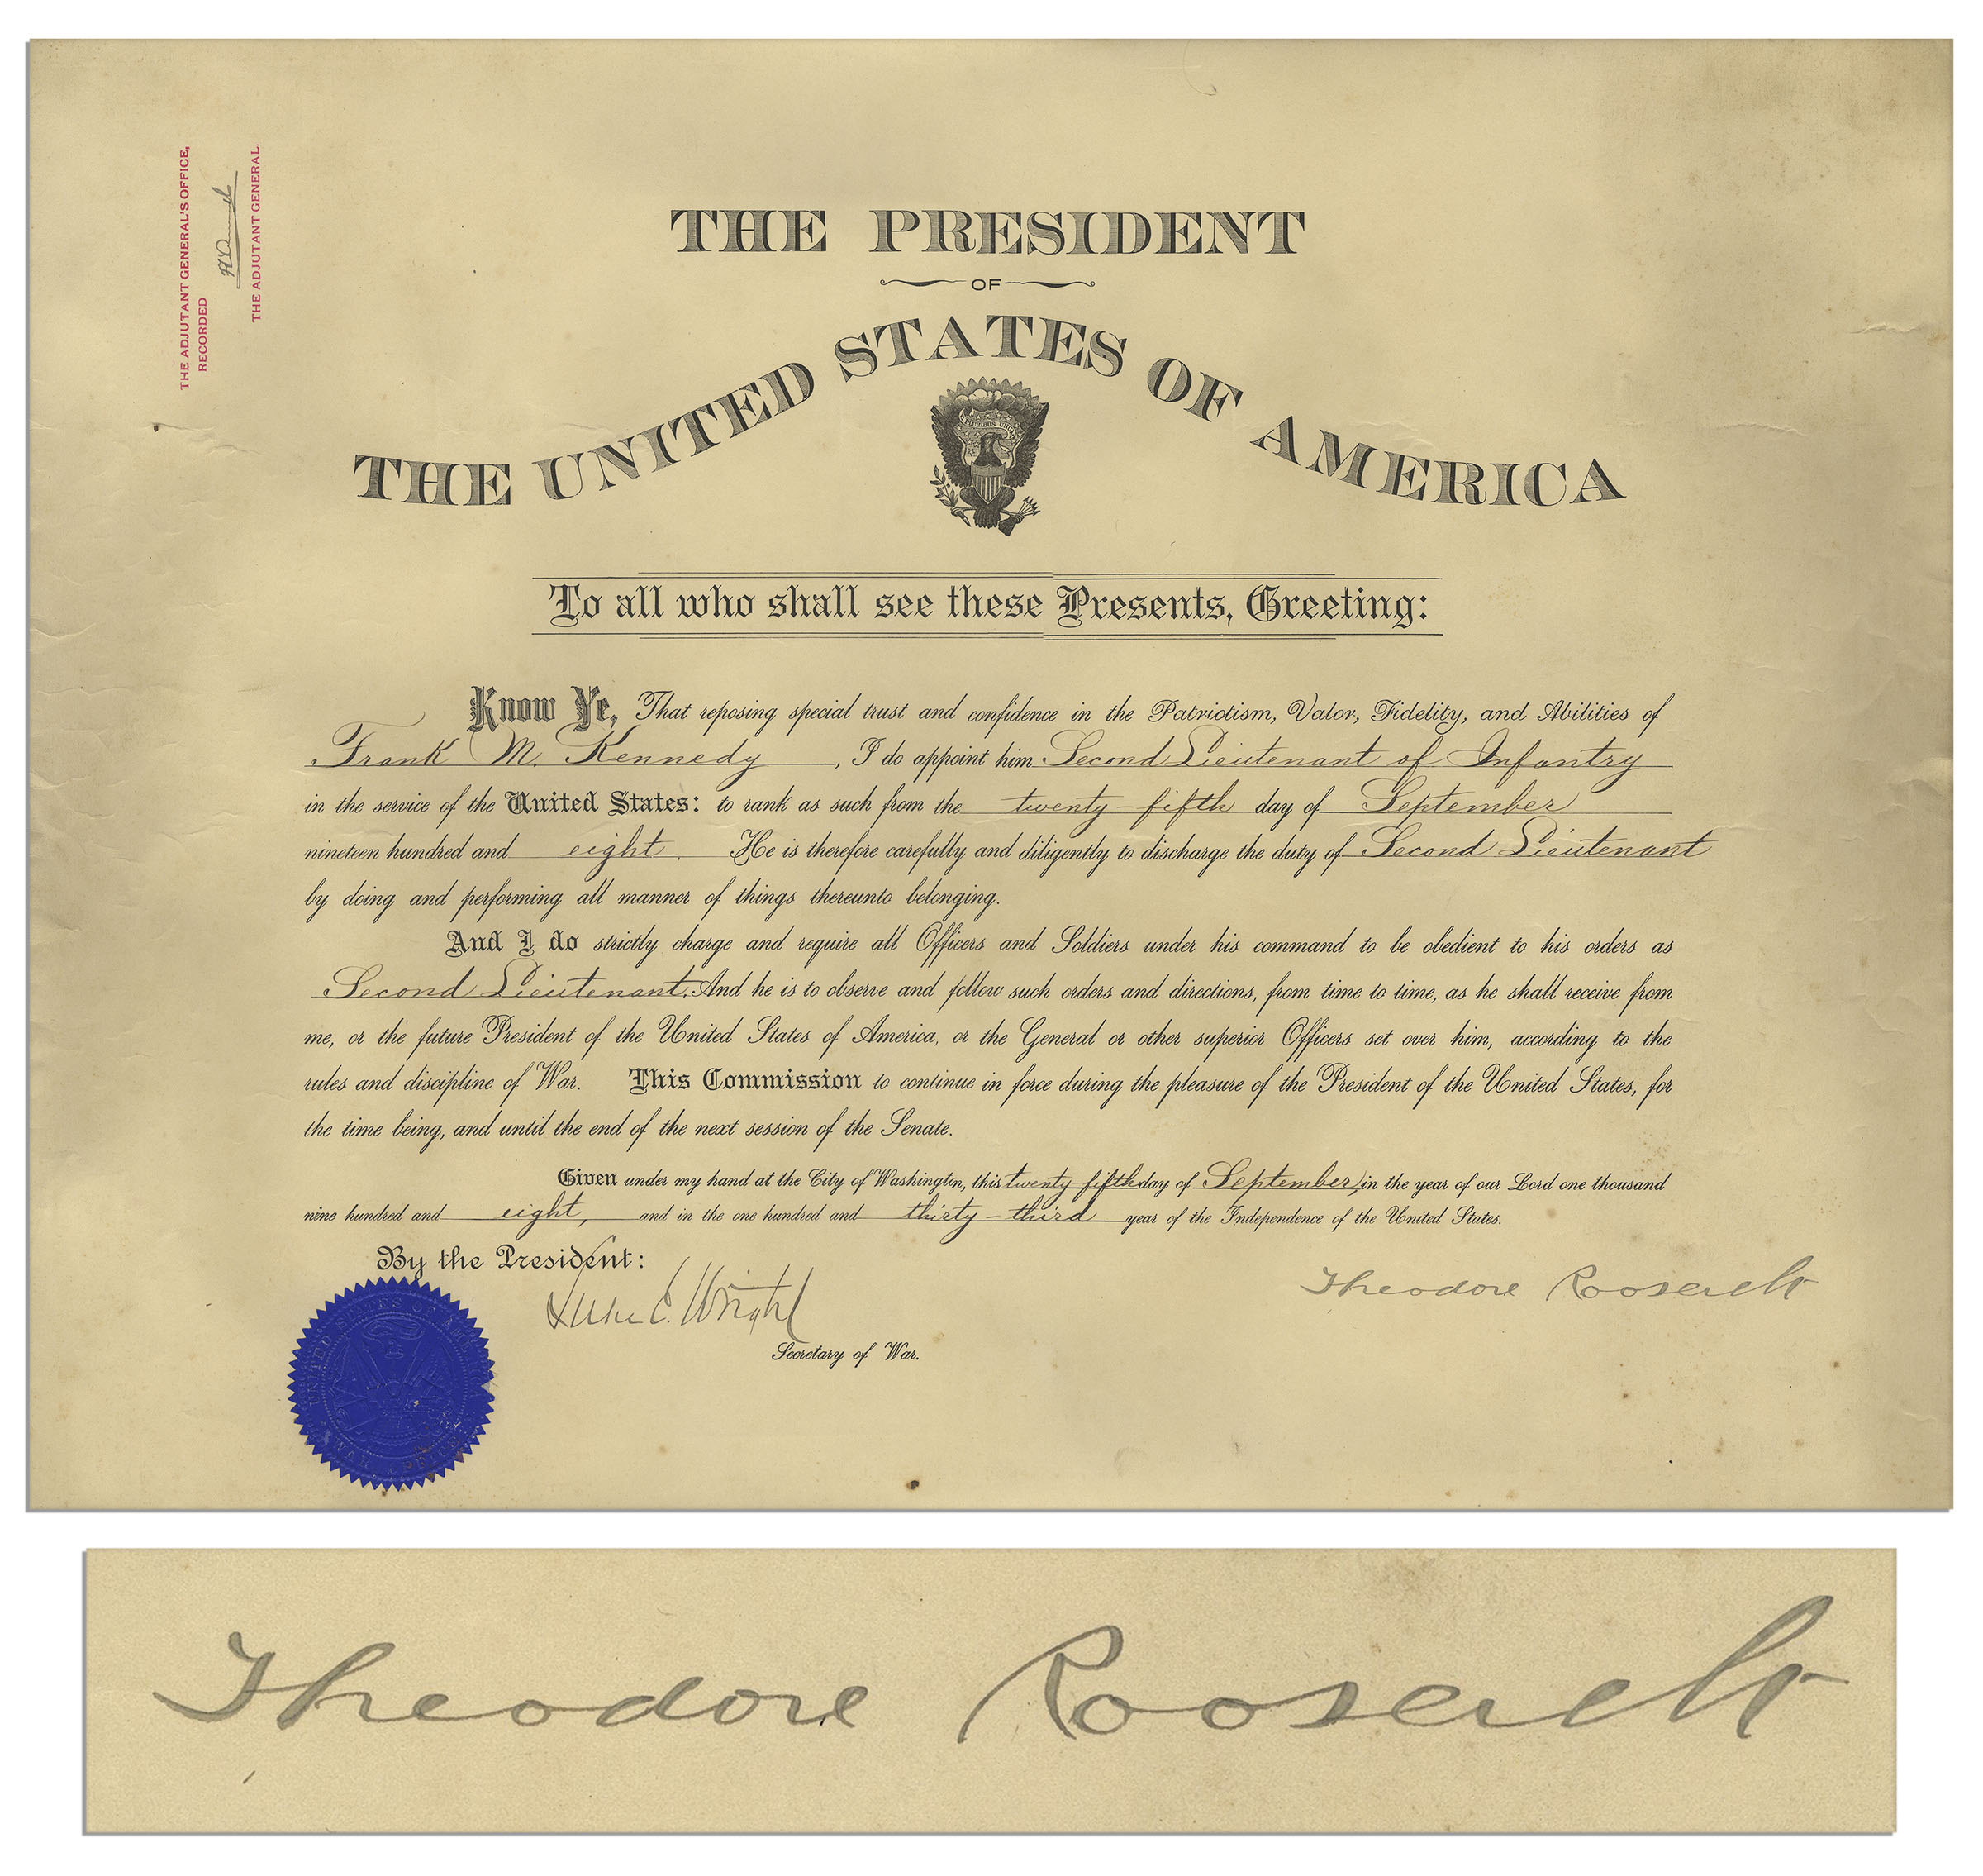 THE ADJUTANT GENERAL'S OFFICE,
RECORDED
THE ADJUTANT GENERAL.
THE PRESIDENT
OF
THE UNITED STATES OF AMERICA
To all who shall see these Presents, Greeting:
Know Ye, That reposing special trust and confidence in the Patriotism, Valor, Fidelity, and Abilities of
Frank M. Kennedy, I do appoint him Second Lieutenant of Infantry
in the service of the United States: to rank as such from the twenty-fifth day of September
nineteen hundred and eight. He is therefore carefully and diligently to discharge the duty of Second Lieutenant
by doing and performing all manner of things thereunto belonging.
And I do strictly charge and require all Officers and Soldiers under his command to be obedient to his orders as
Second Lieutenant. And he is to observe and follow such orders and directions, from time to time, as he shall receive from
me, or the future President of the United States of America, or the General or other superior Officers set over him, according to the
rules and discipline of War. This Commission to continue in force during the pleasure of the President of the United States, for
the time being, and until the end of the next session of the Senate.
Given under my hand at the City of Washington, this twenty-fifth day of September, in the year of our Lord one thousand
nine hundred and eight, and in the one hundred and thirty-third year of the Independence of the United States.
By the President:
Theodore Roosevelt
Luke E. Wright
Secretary of War.
UNITED STATES OF AMERICA
Theodore Roosevelt